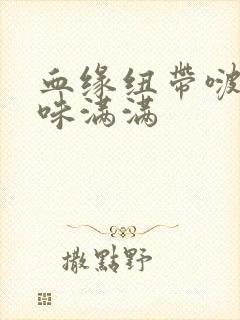 血缘纽带啵
味满满
撒點野